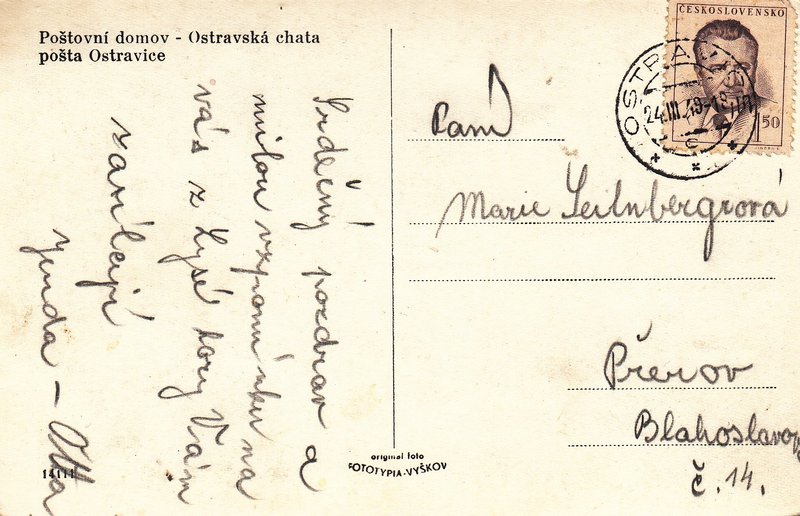 Poštovní domov - Ostravská chata
pošta Ostravice
Srdečný pozdrav a
milou vzpomínku na
vás z Lysé hory Vám
zasílají
Jenda – Otta
14111
original foto
FOTOTYPIA-VYŠKOV
ČESKOSLOVENSKO
1 50
24.III.49-18
Paní
Marie
Přerov
Blahoslavov
č. 14.